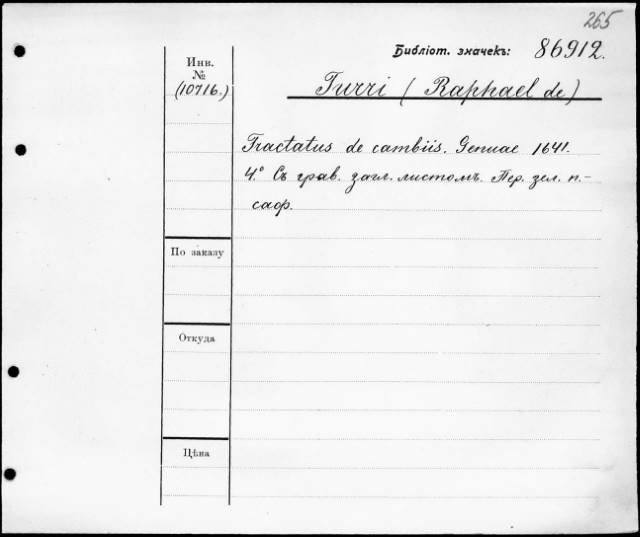 265
Библіот. значекъ: 86912.
Инв.
№
(10716.)
Turri (Raphael de)
Tractatus de cambiis. Genuae 1641.
4.° Съ грав. загл. листомъ. Пер. зел. п.-
саф.
По заказу
Откуда
Цѣна